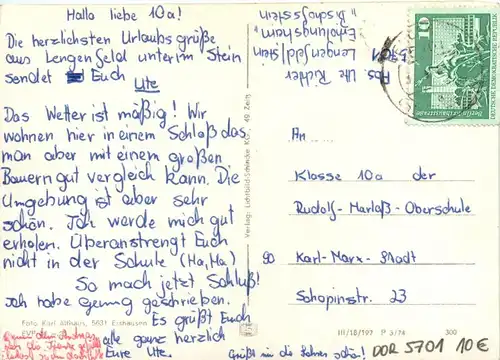 Hallo liebe 10a!
Die herzlichsten Urlaubsgrüße
aus Lengenfeld unterm Stein
sendet Euch
Ute
Das Wetter ist mäßig! Wir
wohnen hier in einem Schloß das
man aber mit einem großen
Bauerngut vergleich kann. Die
Umgebung ist aber sehr
schön. Ich werde mich gut
erholen. Überanstrengt Euch
nicht in der Schule (Ha, Ha)
So mach jetzt Schluß!
ich habe genug geschrieben.
Es grüßt Euch
alle ganz herzlich
Eure Ute
Foto Karl
Verlag: Lichtbild-Schincke KG,
Abs. Ute Richter
5701
Lengenfeld/Stein
Erholungsheim
"Bischofsstein"
10
DEUTSCHE DEMOKRATISCHE REPUBLIK
An
Klasse 10a der
Rudolf-Marlaß-Oberschule
90 Karl-Marx-Stadt
Schopinstr. 23
III/18/197 P 3/74 300
Grüßt mir die Lehrer schön!
DDR 5701 10€